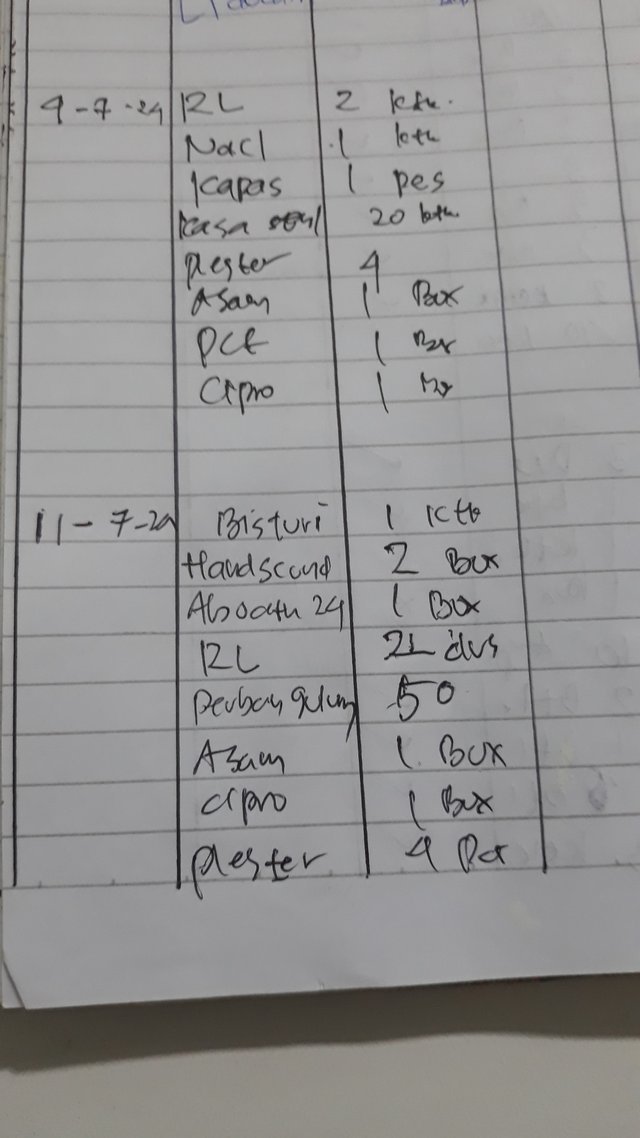 4-7-24 RL 2 ktk.
Nacl 1 ktk
kapas 1 pcs
kasa 20 ktk
plester 4
Asam 1 Box
PCT 1 Box
Cipro 1
11-7-24 Bisturi 1 ktk
Handscund 2 Box
Abocath 24 1 Box
RL 2 dus
perban gulung 50
Asam 1 Box
cipro 1 Box
plester 4